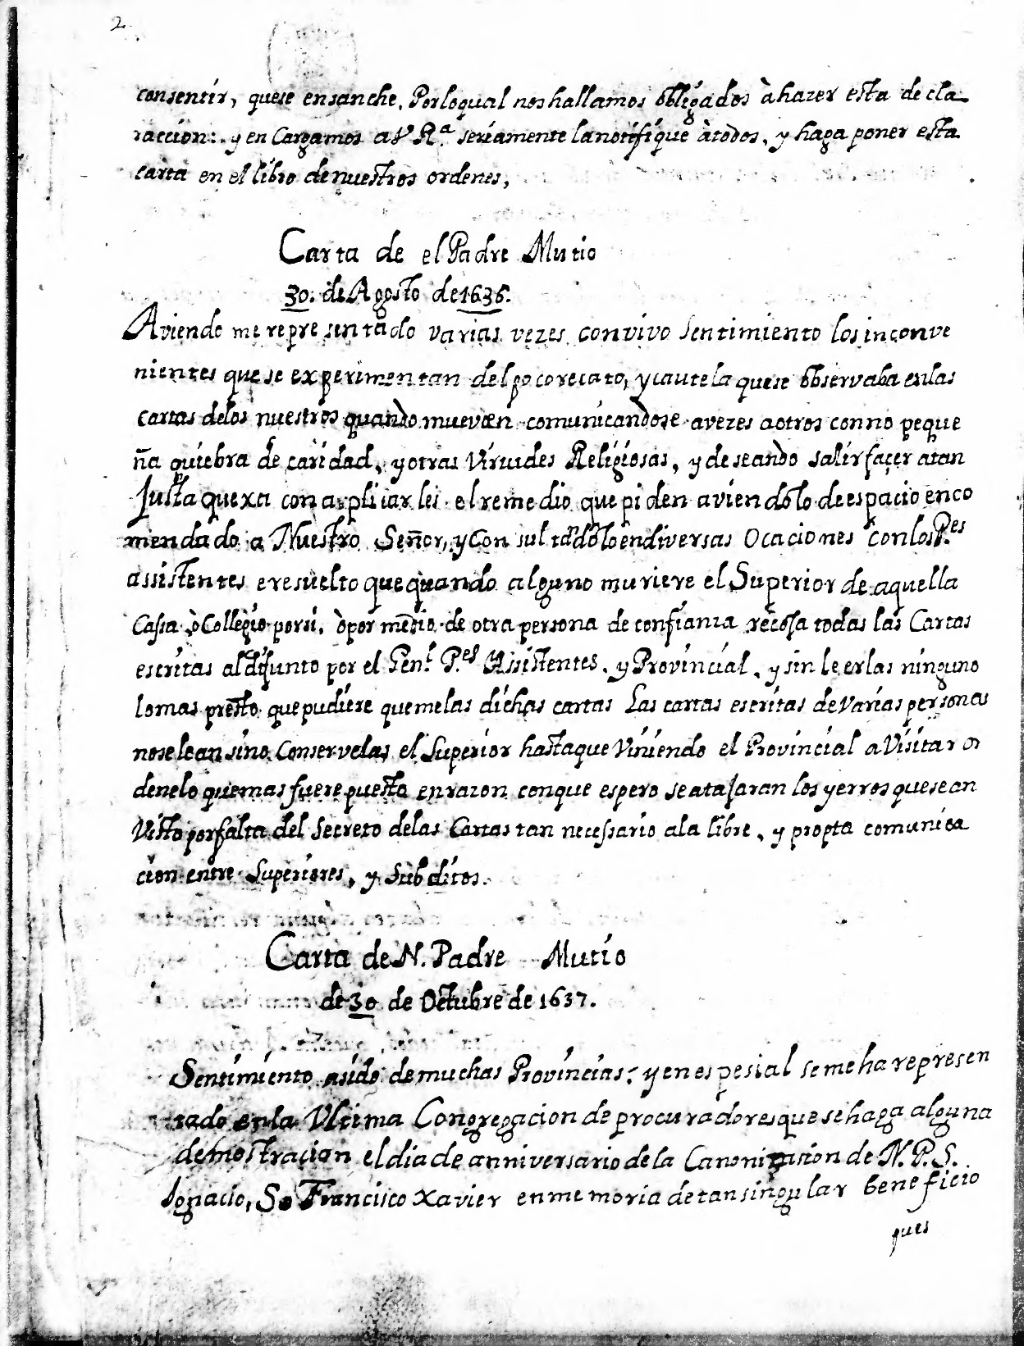 2
consentir, quese ensanche, Porloqual nos hallamos obligados àhazer esta de cla
raccion:. y en Cargamos a V Rª. seriamente lanotifique àtodos, y haga poner esta
carta en el libro de nuestros ordenes,
Carta de el Padre Mutio
30. de Agosto de 1636.
Aviendo me repre sentado varias vezes con vivo sentimiento los inconve
nientes que se experimentan del poco recato, y cautela quese observaba enlas
cartas delos nuestros quando mueven comunicandose avezes aotros conno peque
ña quiebra de caridad, y otras Virtudes Religiosas, y deseando satisfaçer atan
Justa quexa con applicarlei el remedio que piden aviendolo de espacio enco
mendado a Nuestro Señor, y Con sultandolo endiversas Ocaciones con los P.es
assistentes eresuelto que quando alguno muriere el Superior de aquella
Cassa ò Collegio por si, òpor medio de otra persona de confianza recoja todas las Cartas
escritas al difunto por el Gen.l P.es Assistentes, y Provincial, y sin leerlas ninguno
lo mas presto que pudiere quemelas dichas cartas Las cartas escritas de Varias personas
nose lean sino Conservelas el Superior hastaque Viniendo el Provincial a Visitar or
denelo quemas fuere puesto enrazon conque espero se atajaran los yerros quesean
Visto por falta del Secreto delas Cartas tan necessario ala libre, y propta comunica
cion entre Superiores, y Subditos.
Carta de N. Padre Mutio
de 30 de Octubre de 1637.
Sentimiento asido de muchas Provincias: y en espesial se me ha represen
tado en la Vltima Congregacion de procuradores que se haga alguna
demostraçion el dia de anniversario de la Canonizasion de N. P. S.
Ignacio, So Francisco Xavier en memoria de tan singular beneficio
pues